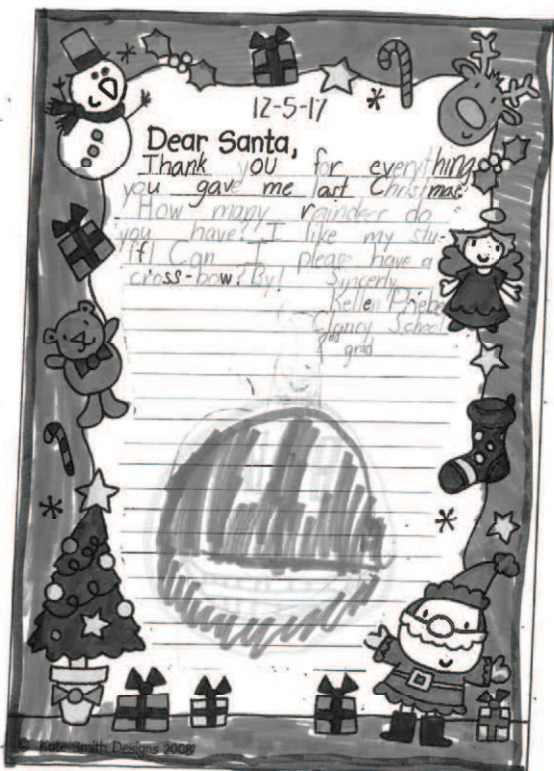 12-5-17
Dear Santa,
Thank you for everything
you gave me last Christmas.
How many raindeer do
you have? I like my stu-
ff! Can I please have a
cross-bow? By! Sincerly
Kellen Phiebe
Clancy School
2nd grad
© Kate Smith Designs 2008